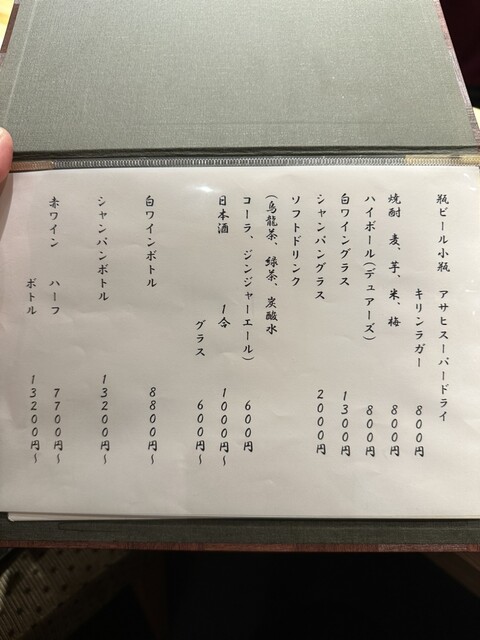 瓶ビール小瓶 アサヒスーパードライ
キリンラガー 800円
焼酎 麦、芋、米、梅 800円
ハイボール(デュアーズ) 800円
白ワイングラス 1300円
シャンパングラス 2000円
ソフトドリンク
(烏龍茶、緑茶、炭酸水
コーラ、ジンジャーエール) 600円
日本酒 1合 1000円~
グラス 600円~
白ワインボトル 8800円~
シャンパンボトル 13200円~
赤ワイン ハーフ 7700円~
ボトル 13200円~